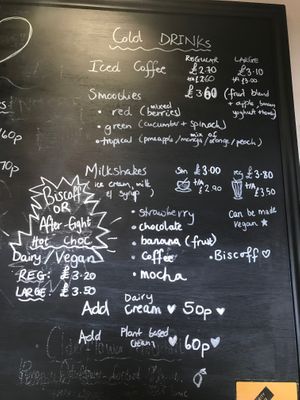 Cold DRINKS
REGULAR LARGE
Iced Coffee £2.70 £3.10
t/a £2.60 t/a £3.00
Smoothies £3.60 (fruit blend
+ apple, banana
yoghurt + honey)
• red (mixed berries)
• green (cucumber + spinach)
• tropical (pineapple/mango/orange/peach)
mix of
Milkshakes sm £3.00 reg £3.80
(ice cream, milk
& syrup) t/a £2.90 t/a £3.50
• Strawberry
• chocolate
• banana (fruit)
• Coffee • Biscoff
• mocha
Can be made
vegan
Biscoff
OR
After Eight
Hot choc
Dairy Vegan
REG: £3.20
LARGE: £3.50
Add Dairy Cream 50p
Add Plant based cream 60p
60p
70p